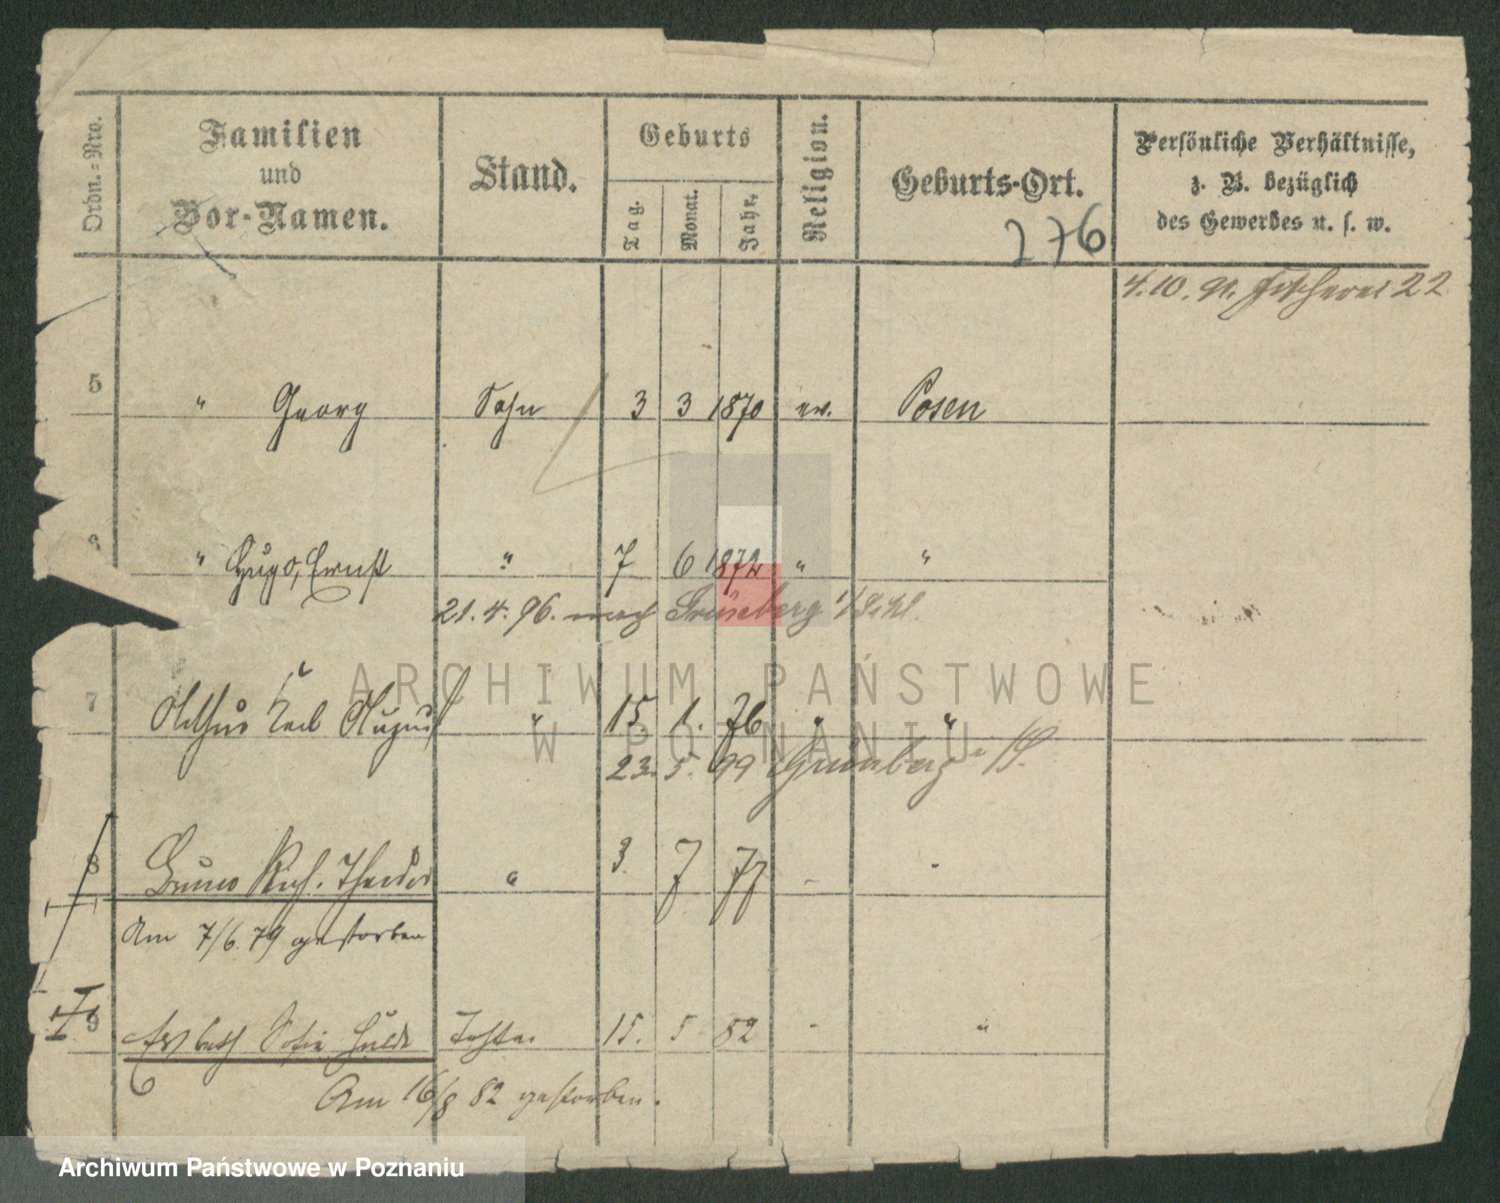 Ordn.=Nro.
Familien
und
Vor-Namen.
Stand.
Geburts
Tag.
Monat.
Jahr.
Religion.
Geburts-Ort.
Persönliche Verhältnisse,
z. B. bezüglich
des Gewerbes u. s. w.
276
4.10.91. Fischerei 22
5 " Georg Sohn 3 3 1870 ev. Posen
" Hugo, Ernst " 7 6 1872 " "
21.4.96. nach Grüneberg i/Schl.
7 Arthur Karl August " 15. 1. 76 " "
23. 5. 99 Grünberg i/S.
8 Bruno Rich. Theodor " 3. 7 77 - -
Am 7/6. 79 gestorben
9 Elsbeth Sofie Hulda Tochter 15. 5 82 - "
Am 16/8 82 gestorben.
ARCHIWUM PAŃSTWOWE
W POZNANIU
Archiwum Państwowe w Poznaniu